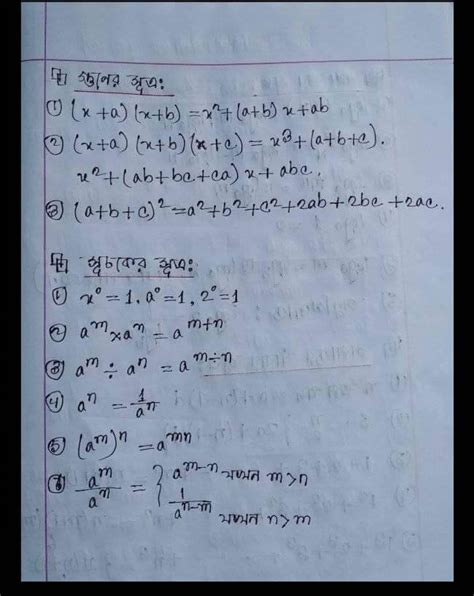 গুণের সূত্রঃ
① (x+a) (x+b) = x²+(a+b) x+ab
② (x+a) (x+b) (x+c) = x³+(a+b+c).
x²+(ab+bc+ca) x+abc.
③ (a+b+c)² = a²+b²+c²+2ab+2bc+2ac.
সূচকের সূত্রঃ
① x⁰ = 1, a⁰ = 1, 2⁰ = 1
② aᵐ×aⁿ = aᵐ⁺ⁿ
③ aᵐ ÷ aⁿ = a^(m÷n)
④ aⁿ = 1/aⁿ
⑤ (aᵐ)ⁿ = aᵐⁿ
⑥ aᵐ/aⁿ = { aᵐ⁻ⁿ যখন m>n
1/aⁿ⁻ᵐ যখন n>m